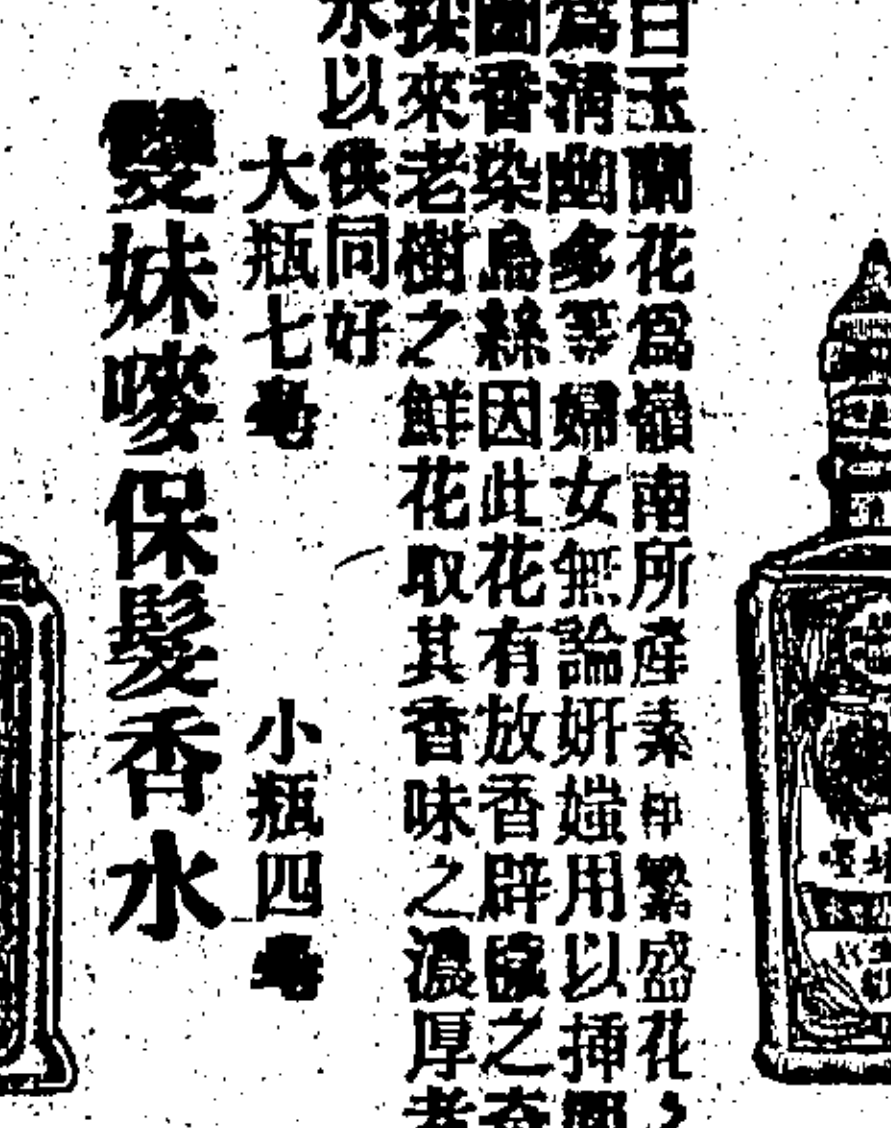 白玉蘭花爲嶺南所產素稱繁盛花
爲清幽多等婦女無論妍媸用以插
香染烏絲因此花有放香辟穢之奇
採來老樹之鮮花取其香味之濃厚者
水以供同好
大瓶七毫 小瓶四毫
雙妹嘜保髮香水